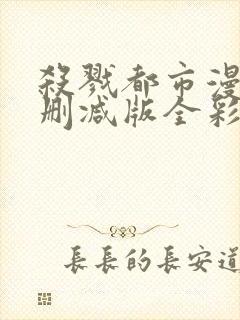 殺戮都市漫
刪減版全彩
長長的長安道